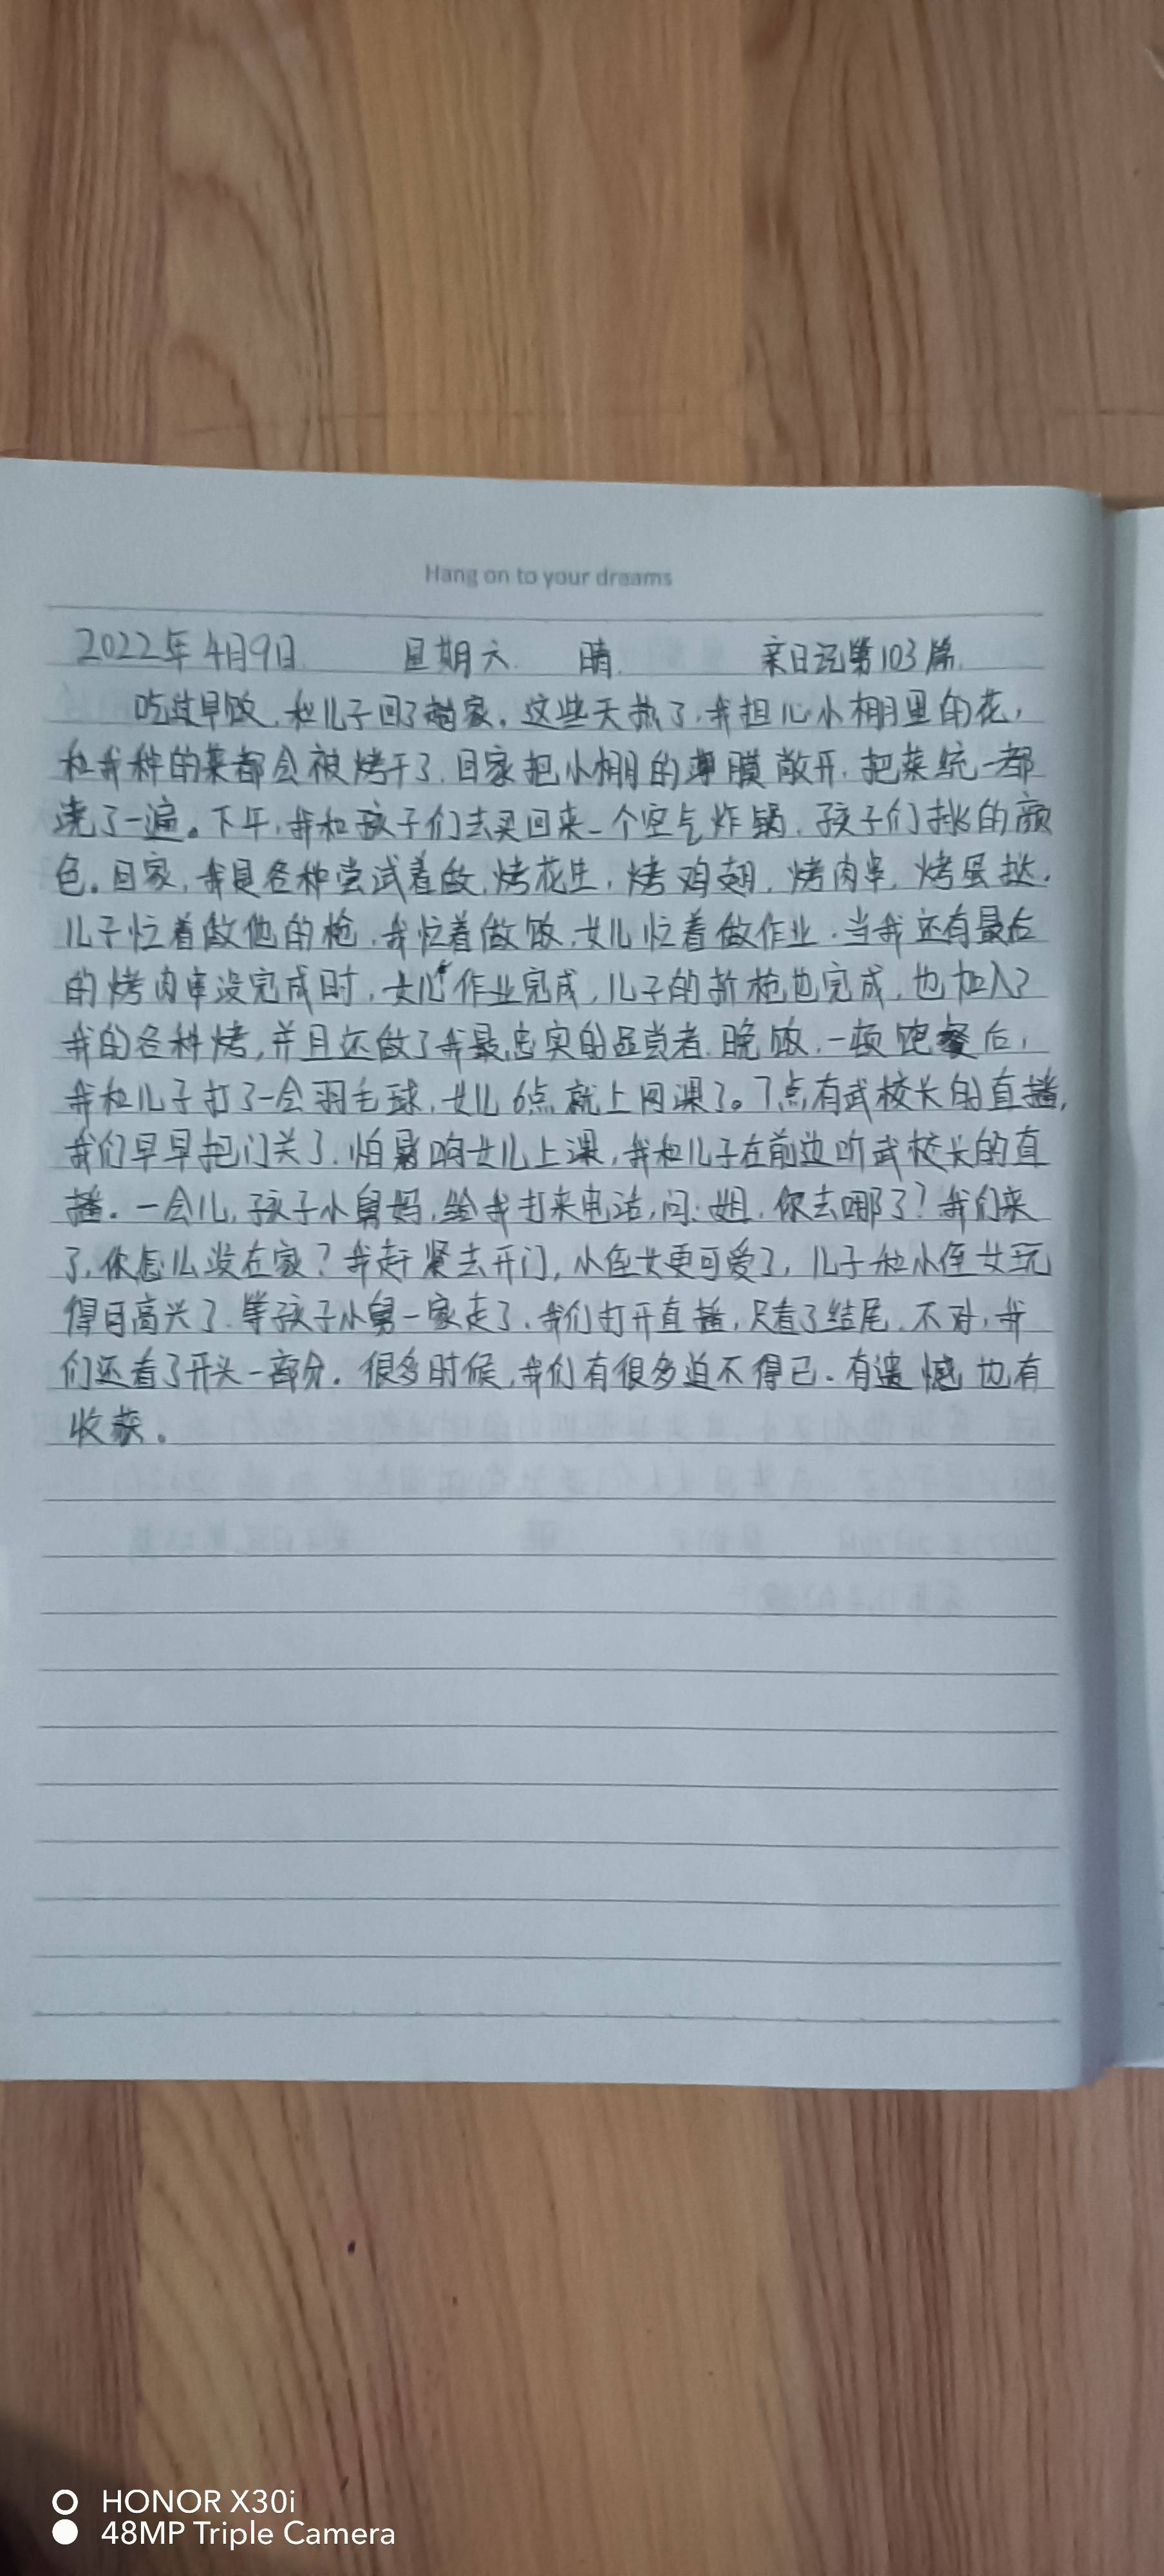 Hang on to your dreams
2022年4月9日 星期六 晴 亲日记第103篇
吃过早饭,和儿子回了趟家。这些天热了,我担心小棚里的花,
和我种的菜都会被烤干了,回家把小棚的薄膜敞开,把菜统一都
浇了一遍。下午,我和孩子们去买回来一个空气炸锅,孩子们挑的颜
色。回家,我是各种尝试着做,烤花生,烤鸡翅,烤肉串,烤蛋挞。
儿子忙着做他的枪,我忙着做饭,女儿忙着做作业。当我还有最后
的烤肉串没完成时,女儿作业完成,儿子的折枪也完成,也加入了
我的各种烤,并且还做了我最忠实的品尝者。晚饭,一顿饱餐后,
我和儿子打了一会羽毛球,女儿6点就上网课了。7点有武校长的直播,
我们早早把门关了,怕影响女儿上课,我和儿子在前边听武校长的直
播。一会儿,孩子小舅妈,给我打来电话,问:姐,你去哪了?我们来
了,你怎么没在家?我赶紧去开门,小侄女更可爱了,儿子和小侄女玩
得可高兴了。等孩子小舅一家走了,我们打开直播,只看了结尾,不对,我
们还看了开头一部分。很多时候,我们有很多迫不得已。有遗憾也有
收获。
HONOR X30i
48MP Triple Camera